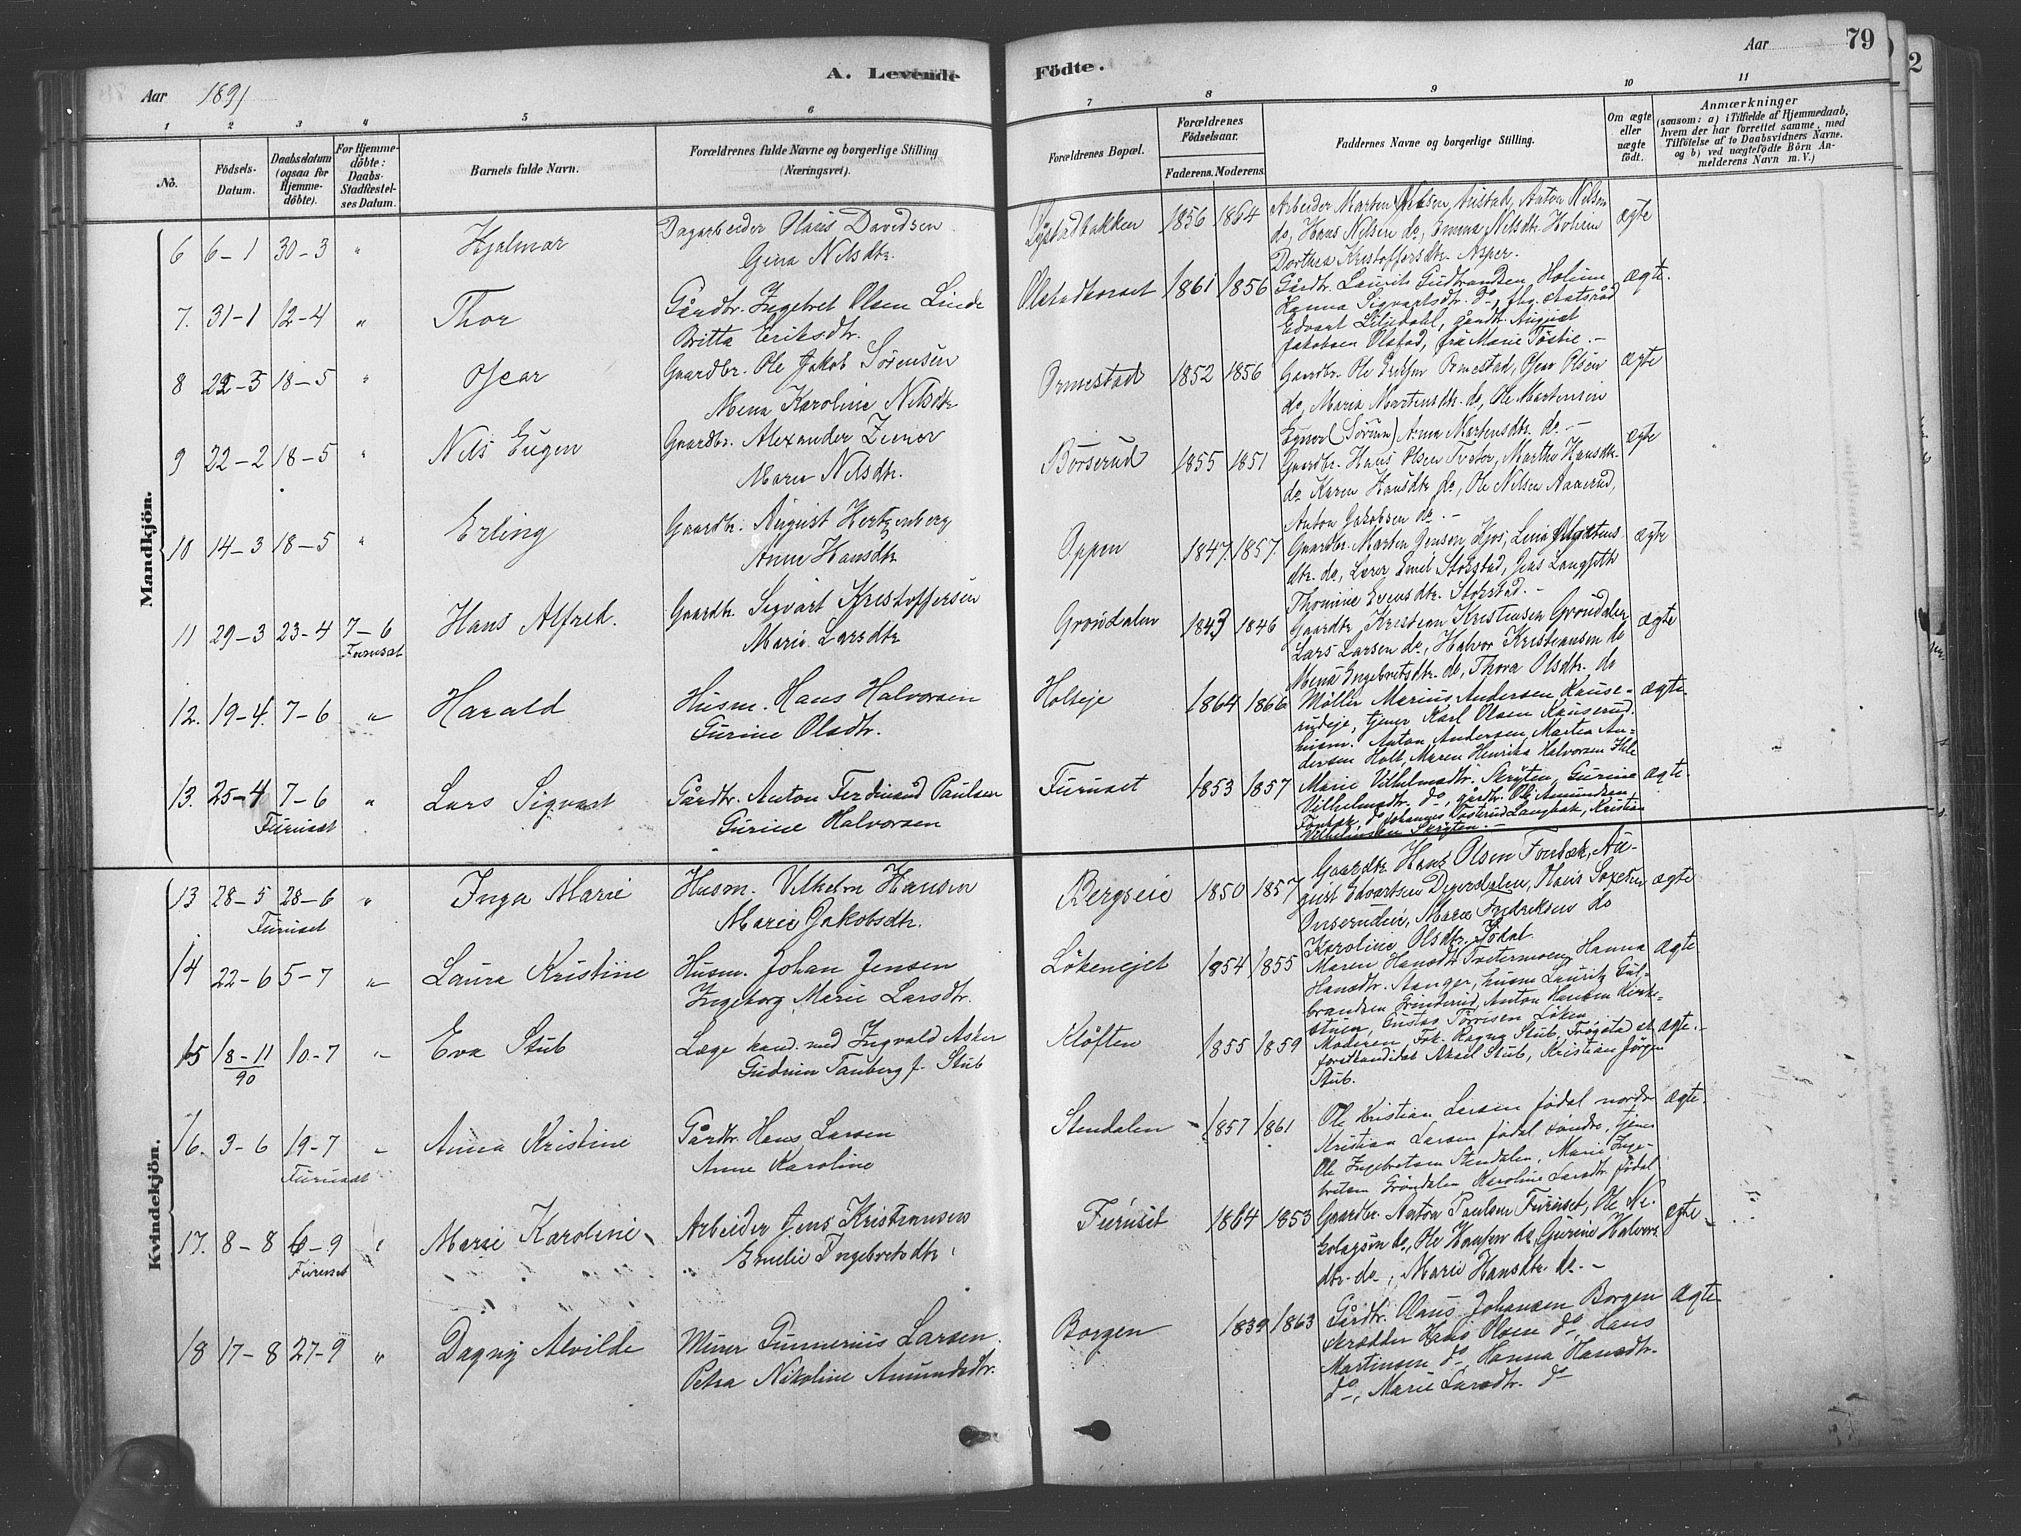 Aar 1891
A. Levende
Födte.
Aar
79
1 2 3 4 5 6 7 8 9 10 11
No.
Födsels-Datum.
Daabsdatum (ogsaa for Hjemme-döbte).
For Hjemme-döbte: Daabs-Stadfæstel-ses Datum.
Barnets fulde Navn.
Forældrenes fulde Navne og borgerlige Stilling (Næringsvei).
Forældrenes Bopæl.
Forældrenes Födselsaar.
Faderens. Moderens.
Faddernes Navne og borgerlige Stilling.
Om ægte eller uægte födt.
Anmærkninger
(saasom: a) i Tilfælde af Hjemmedaab, hvem der har forrettet samme, med Tilföielse af to Daabsvidners Navne, og b) ved uægtefödte Börn An-melderens Navn m. V.)
Mandkjön.
6 6-1 30-3 " Hjalmar
Dagarbeider Hans Davidsen
Gina Nilsdtr.
1856 1864
Arbeider Marten Nilsen Austad, Anton Nilsen
do, Hans Nilsen do, Emma Nilsdtr. Holum
Dorthea Kristoffersdtr. Asper.
ægte
7. 31-1 12-4 " Thor
Gårdbr. Ingebret Olsen Linde
Britta Eriksdtr.
1861 1856
Gårdbr. Laurits Gudbrandsen Holum
Hanna Sigvartsdtr. do,
Edvart Liljedahl, gårdbr. August
Jakobsen Olstad, frk Marie
ægte.
8 18-5 " Oscar
Gaardbr. Ole Jakob Sørensen
Mena Karoline Nilsdtr
Ormestad
1852 1856
Gaardbr. Ole Ormestad, Oscar Olsen
do, Maren Martensdtr. do, Ole Martensen
(Sørum) Anna Martensdtr. do. -
ægte
9 22-2 18-5 " Nils Eugen
Gaardbr. Alexander Zeiner
Maren Nilsdtr.
Børserud
1855 1851
Gaardbr. Hans Olsen Tveter, Marthe Hansdtr.
do Karen Hansdtr do, Ole Nilsen Aaserud,
Anton Jakobsen do. -
ægte
10 14-3 18-5 " Erling
Gaardbr. August Hertzenberg
Anne Hansdtr
Oppen
1847. 1857.
Gaardbr. Marten Jensen Kjos, Lena
dtr. do, Lærer Emil Stokstad, Jens Langseth
Thomine Evensdtr. Stokstad. -
ægte
11 29-3 23-4 7-6 Hans Alfred.
Furuset
Gaardbr. Sigvart Kristoffersen
Marie Larsdtr
Grøndalen
1843 1846
Gaardbr Kristian Kristiansen Grøndalen
Lars Larsen do, Halvor Kristiansen do
Mena Ingebretsdtr. do, Thora Olsdtr. do
ægte
12. 19-4. 7-6 " Harald
Husm. Hans Halvorsen
Gurine Olsdtr.
Holteje
1864 1866
Møller Marius Andersen Kause-
rudeje, tjener Karl Olsen Kauserud.
husm. Anton Andersen, Martea An-
dersen Holt, Maren Henrika Halvorsen
ægte.
13. 25-4 7-6 " Lars Sigvart
Furuset
Gårdbr. Anton Ferdinand Paulsen
Gurine Halvorsen
Furuset
1853 1857
Marie Vilhelmsdtr. Skryten, Gurine
Vilhelmsdtr. do, gårdbr. Ole Amundsen
Fonbæk, do Johannes Langbak, Kristian
Vilhelmsen Skryten. -
ægte.
Kvindekjön.
13 28-5 28-6 " Inga Marie
Furuset
Husm. Vilhelm Hansen
Marie Jakobsdtr.
Bergseie
1850 1857
Gaardbr Hans Olsen Fonbæk, Au-
gust Edvartsen Digerdalen, Olaus
Maren Fredriksen do
Karoline Olsdtr. Fødal
ægte
14 22-6 5-7 " Laura Kristine
Husm. Johan Jensen
Ingeborg Marie Larsdtr.
Løkenejet
1854 1855
Maren Hansdtr Tvetermoen, Hanna
Hansdtr. Stanger, husm Lauritz Gul-
brandsen Grinderud, Anton Hansen Kirke-
stuen, Gustav Tørrisen Løken
ægte
15 18-11/90 10-7 " Eva Stub
Læge kand. med Ingvald Asker
Gudrun Tanberg f. Stub
Kløften
1855 1859
Moderen, Frk. Ragna Stub, Trøgstad
forstkandidat Aksel Stub, Kristian Jørgen
Stub.
ægte.
16. 3-6 19-7 " Anna Kristine
Furuset
Gårdbr. Hans Larsen
Anne Karoline
Stendalen
1857 1861
Ole Kristian Larsen Fødal nordre
Kristian Larsen Fødal søndre, tjener
Ole Ingebretsen Stendalen, Marie Inge-
bretsen Grøndalen Karoline Larsdtr. Fødal
ægte.
17. 8-8 6-9 " Marie Karoline
Furuset
Arbeider Jens Kristiansen
Emelie Ingebretsdtr.
Furuset
1864 1853
Gaardbr. Anton Paulsen Furuset, Ole
do, Ole Hansen do, Gurine Halvors
dtr. do, Marie Hansdtr. do. -
ægte
18 17-8 27-9 " Dagny Alvilde
Murer Gunnerius Larsen
Petra Nikoline Amundsdtr.
Borgen
1839 1863
Gårdbr. Olaus Johansen Borgen
Skrædder Hans Olsen do, Hans
Martinsen do, Hanna Hansdtr.
do, Marie Larsdtr. do
ægte.